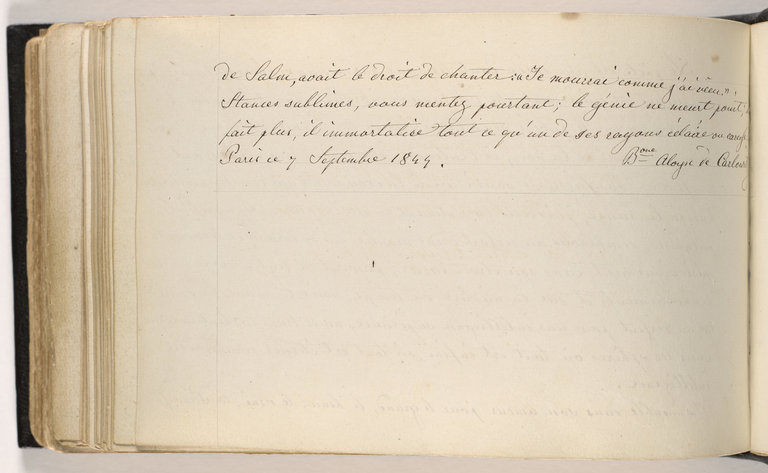 de Salm, avait le droit de chanter : « Je mourrai comme j'ai vécu. »
Stances sublimes, vous mentez pourtant ; le génie ne meurt point ;
fait plus, il immortalise tout ce qu'un de ses rayons éclaire ou
Paris ce 7 Septembre 1844.
Bonne Aloyse de Carlowitz